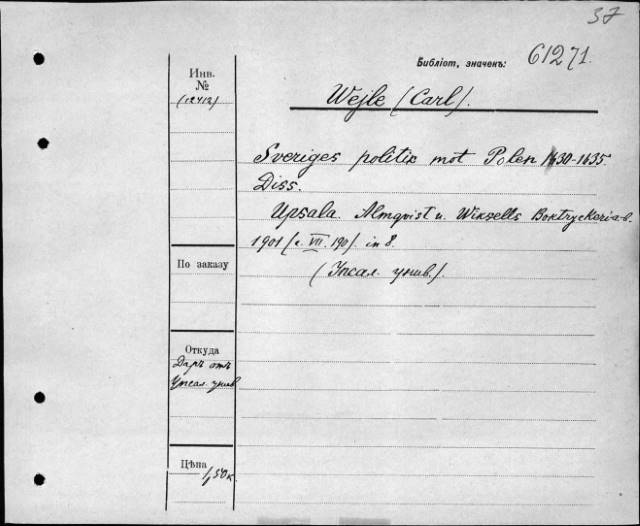 37
Библіот. значекъ: 61271.
Инв.
№
(12412)
Wejle (Carl).
Sveriges politik mot Polen 1630-1635.
Diss.
Upsala. Almqvist u. Wiksells Boktryckeri a-b.
1901 (2. VII. 190). in 8.
(Упсал. унив.).
По заказу
Откуда
Даръ отъ
Упсал. унив
Цѣна
1,50 к.